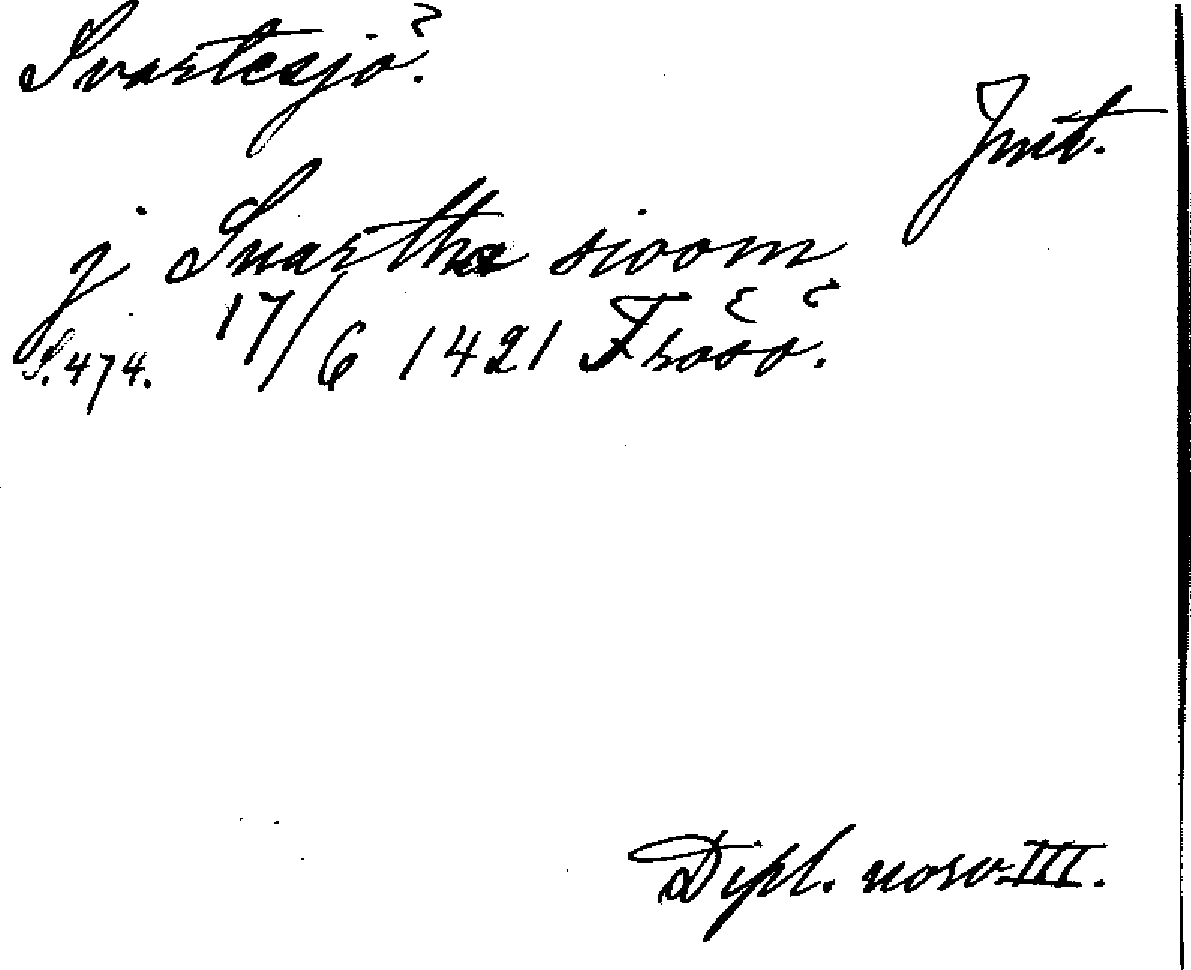 Svartesjö.
Jmt.
j Suartha sioom
S. 474. 17/6 1421 Frösö.
Dipl. norv. III.